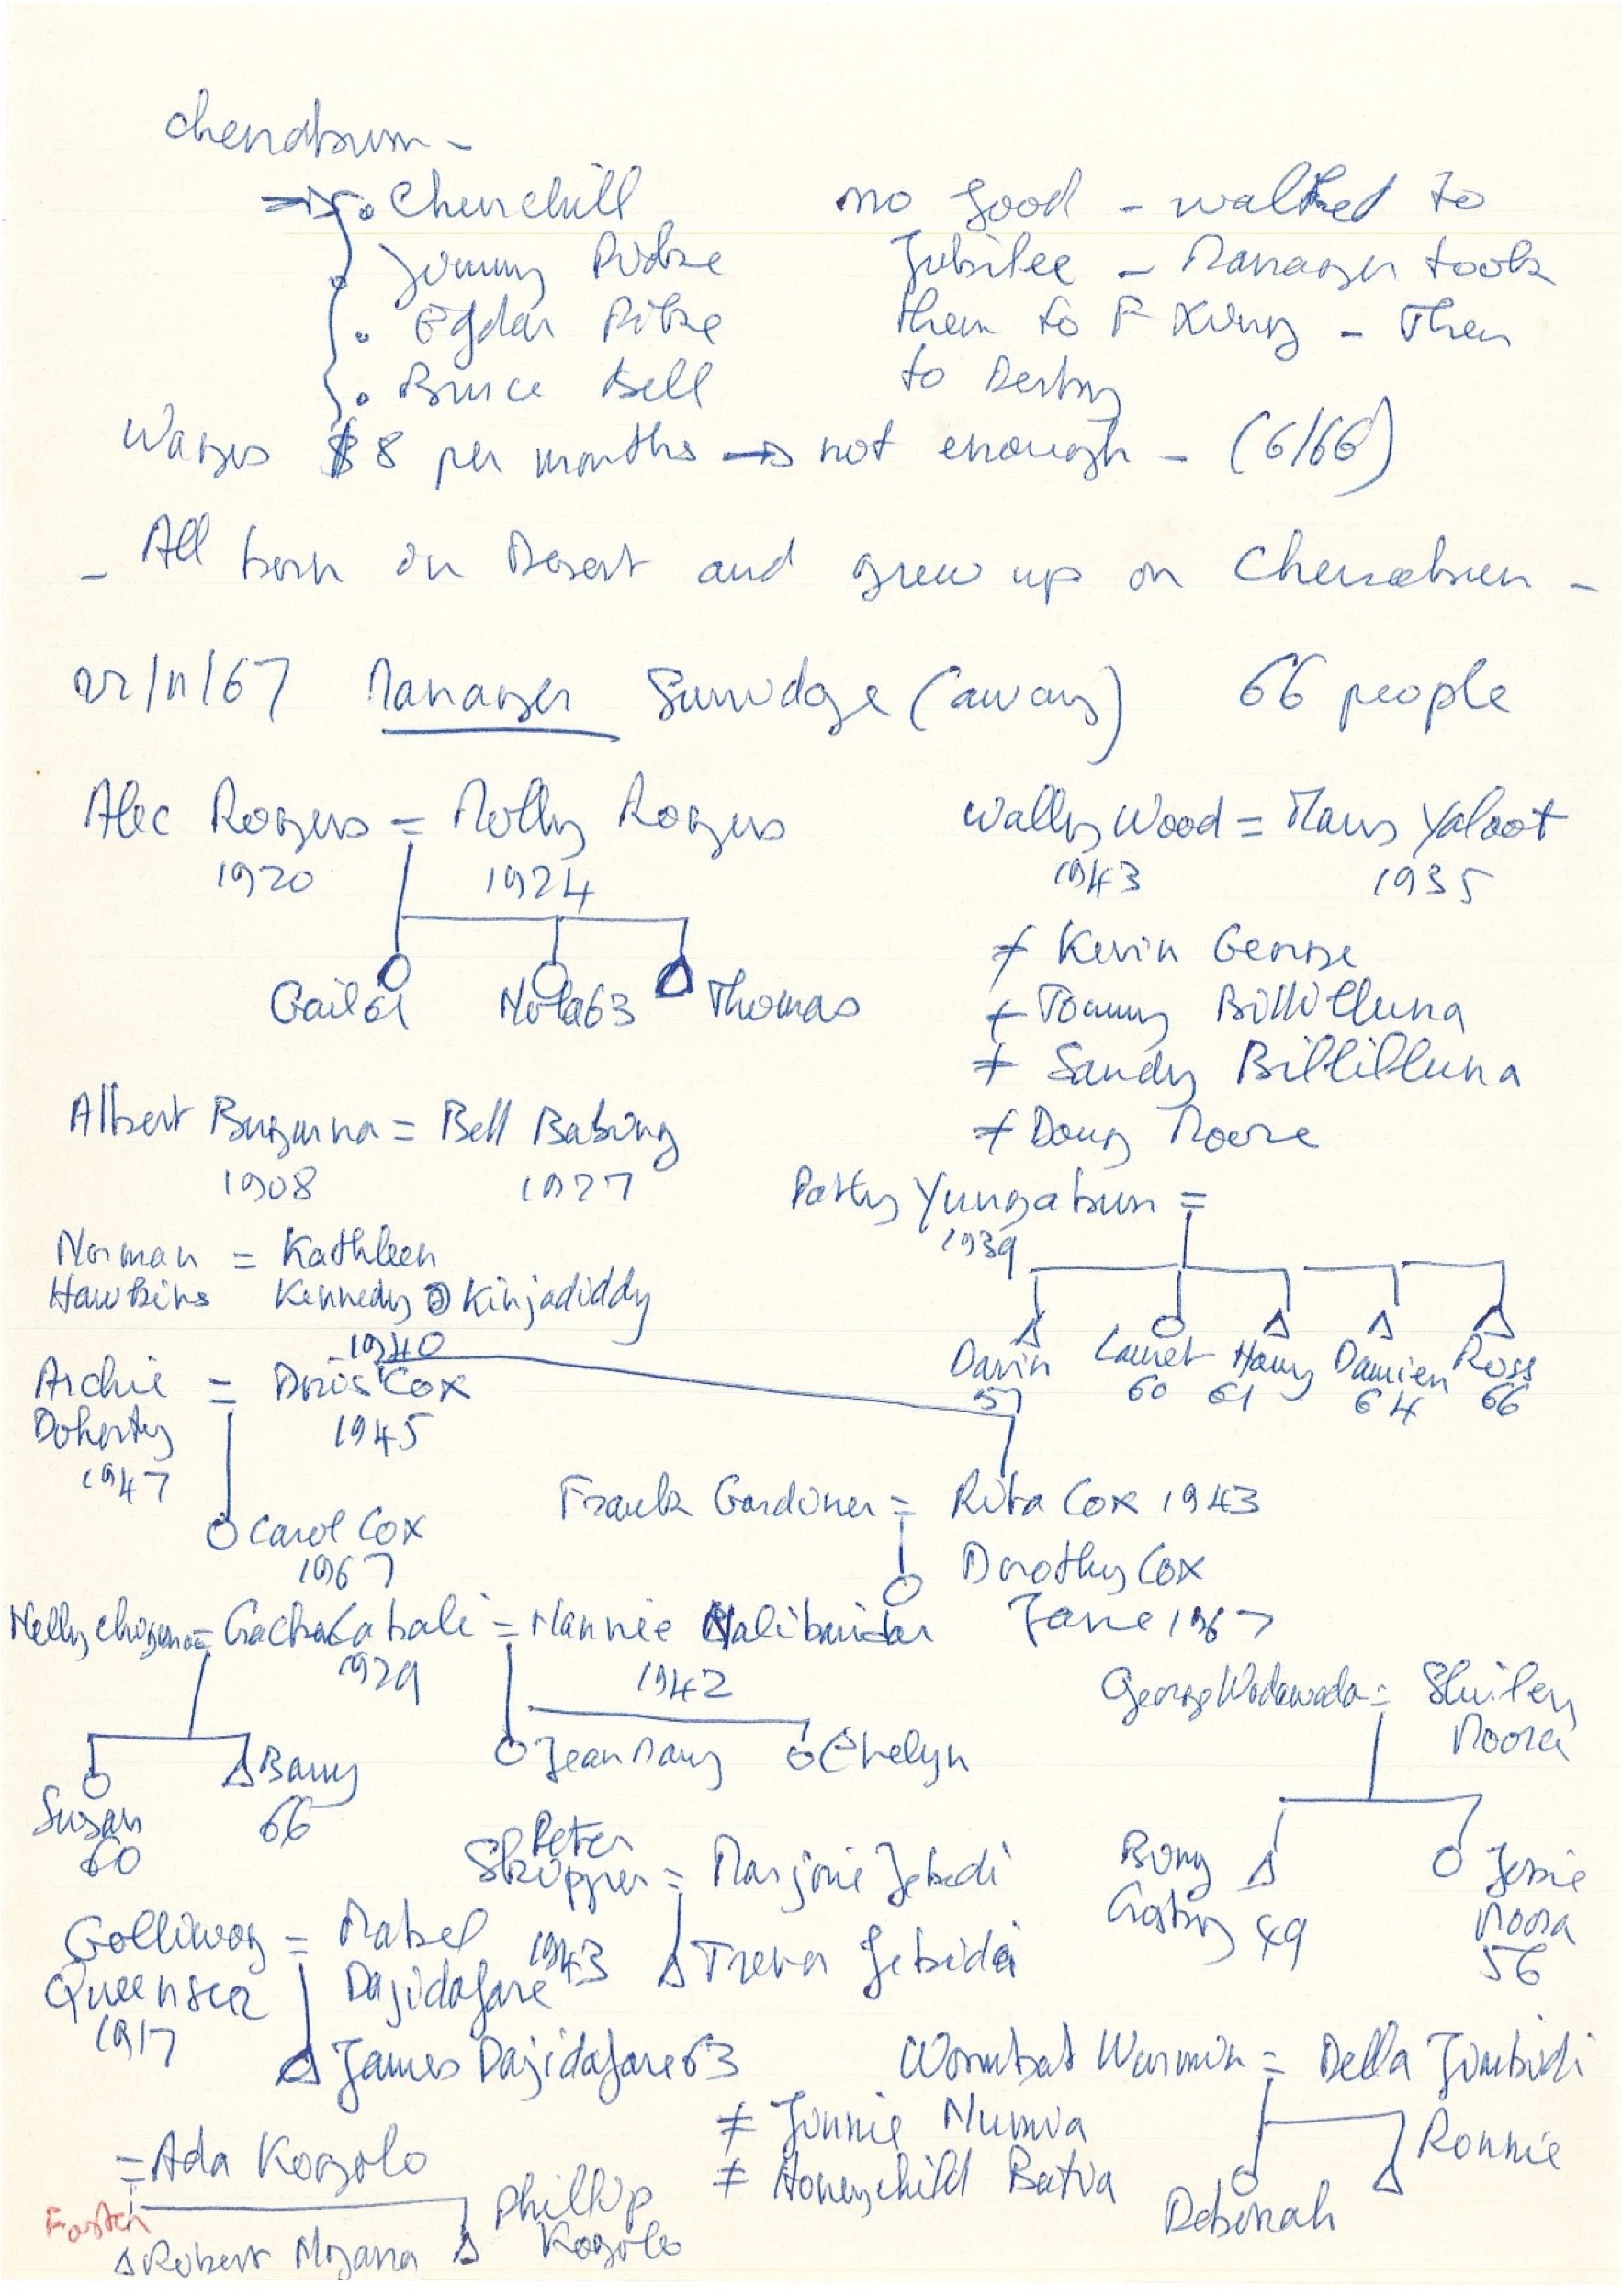 Cherrabrun -
Churchill no good - walked to
Jimmy Pidke Jubilee - Manager took
Egdar Pike them to F Xing - Then
Bruce Bell to Derby
Wages $8 per months → not enough - (6/66)
- All born in Desert and grew up on Cherrabrun -
22/11/67 Manager (away) 66 people
Alec Rogers = Molly Rogers Wally Wood = Mary Yaloot
1920 1924 1943 1935
≠ Kevin George
Gail 61 Nola 63 Thomas ≠ Tommy Billilluna
≠ Sandy Billilluna
Albert = Bell Babing ≠ Doug Moore
1908 1927 Patty Yungabun =
1939
Norman = Kathleen
Hawkins Kennedy Kinjadiddy
1940
Archie = Doris Cox Davin Lauret Harry Damien Ross
Doherty 1945 57 60 61 64 66
1947
Frank Gardiner = Rita Cox 1943
Carol Cox Dorothy Cox
1967 Jane 1967
Nelly = = Mannie
1929 1942 George Wadawada = Shirley
Moora
Jean Mary Evelyn
Susan Barry
60 66
Peter
Skipper = Marjorie Jebidi Bing Jessie
Crosby 49 Moora
56
Golliwog = Mabel 1943 Trevor Jebidi
Queensea Dajidajare
1917
James Dajidajare 63 Wombat Warmin = Della Jimbidi
≠ Jimmie Numia
= Ada Kogolo ≠ Honeychild Batia Ronnie
Deborah
Phillip
Robert Mojana Kogolo